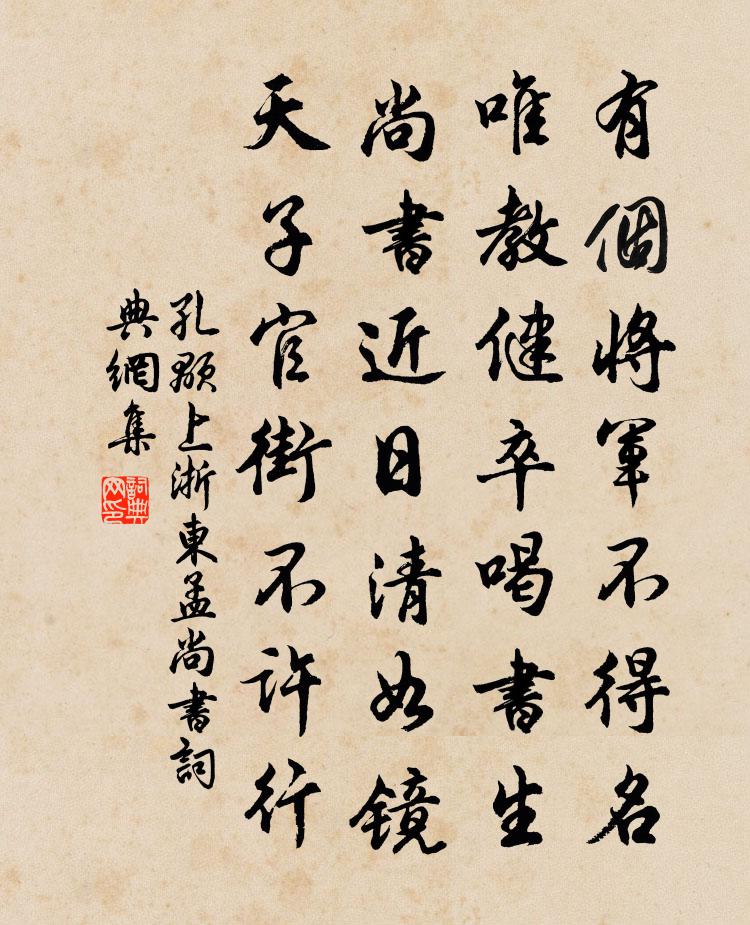 有個將軍不得名
唯教健卒喝書生
尚書近日清如鏡
天子官街不許行
孔顒上浙東孟尚書詞
典網集
詞典網印